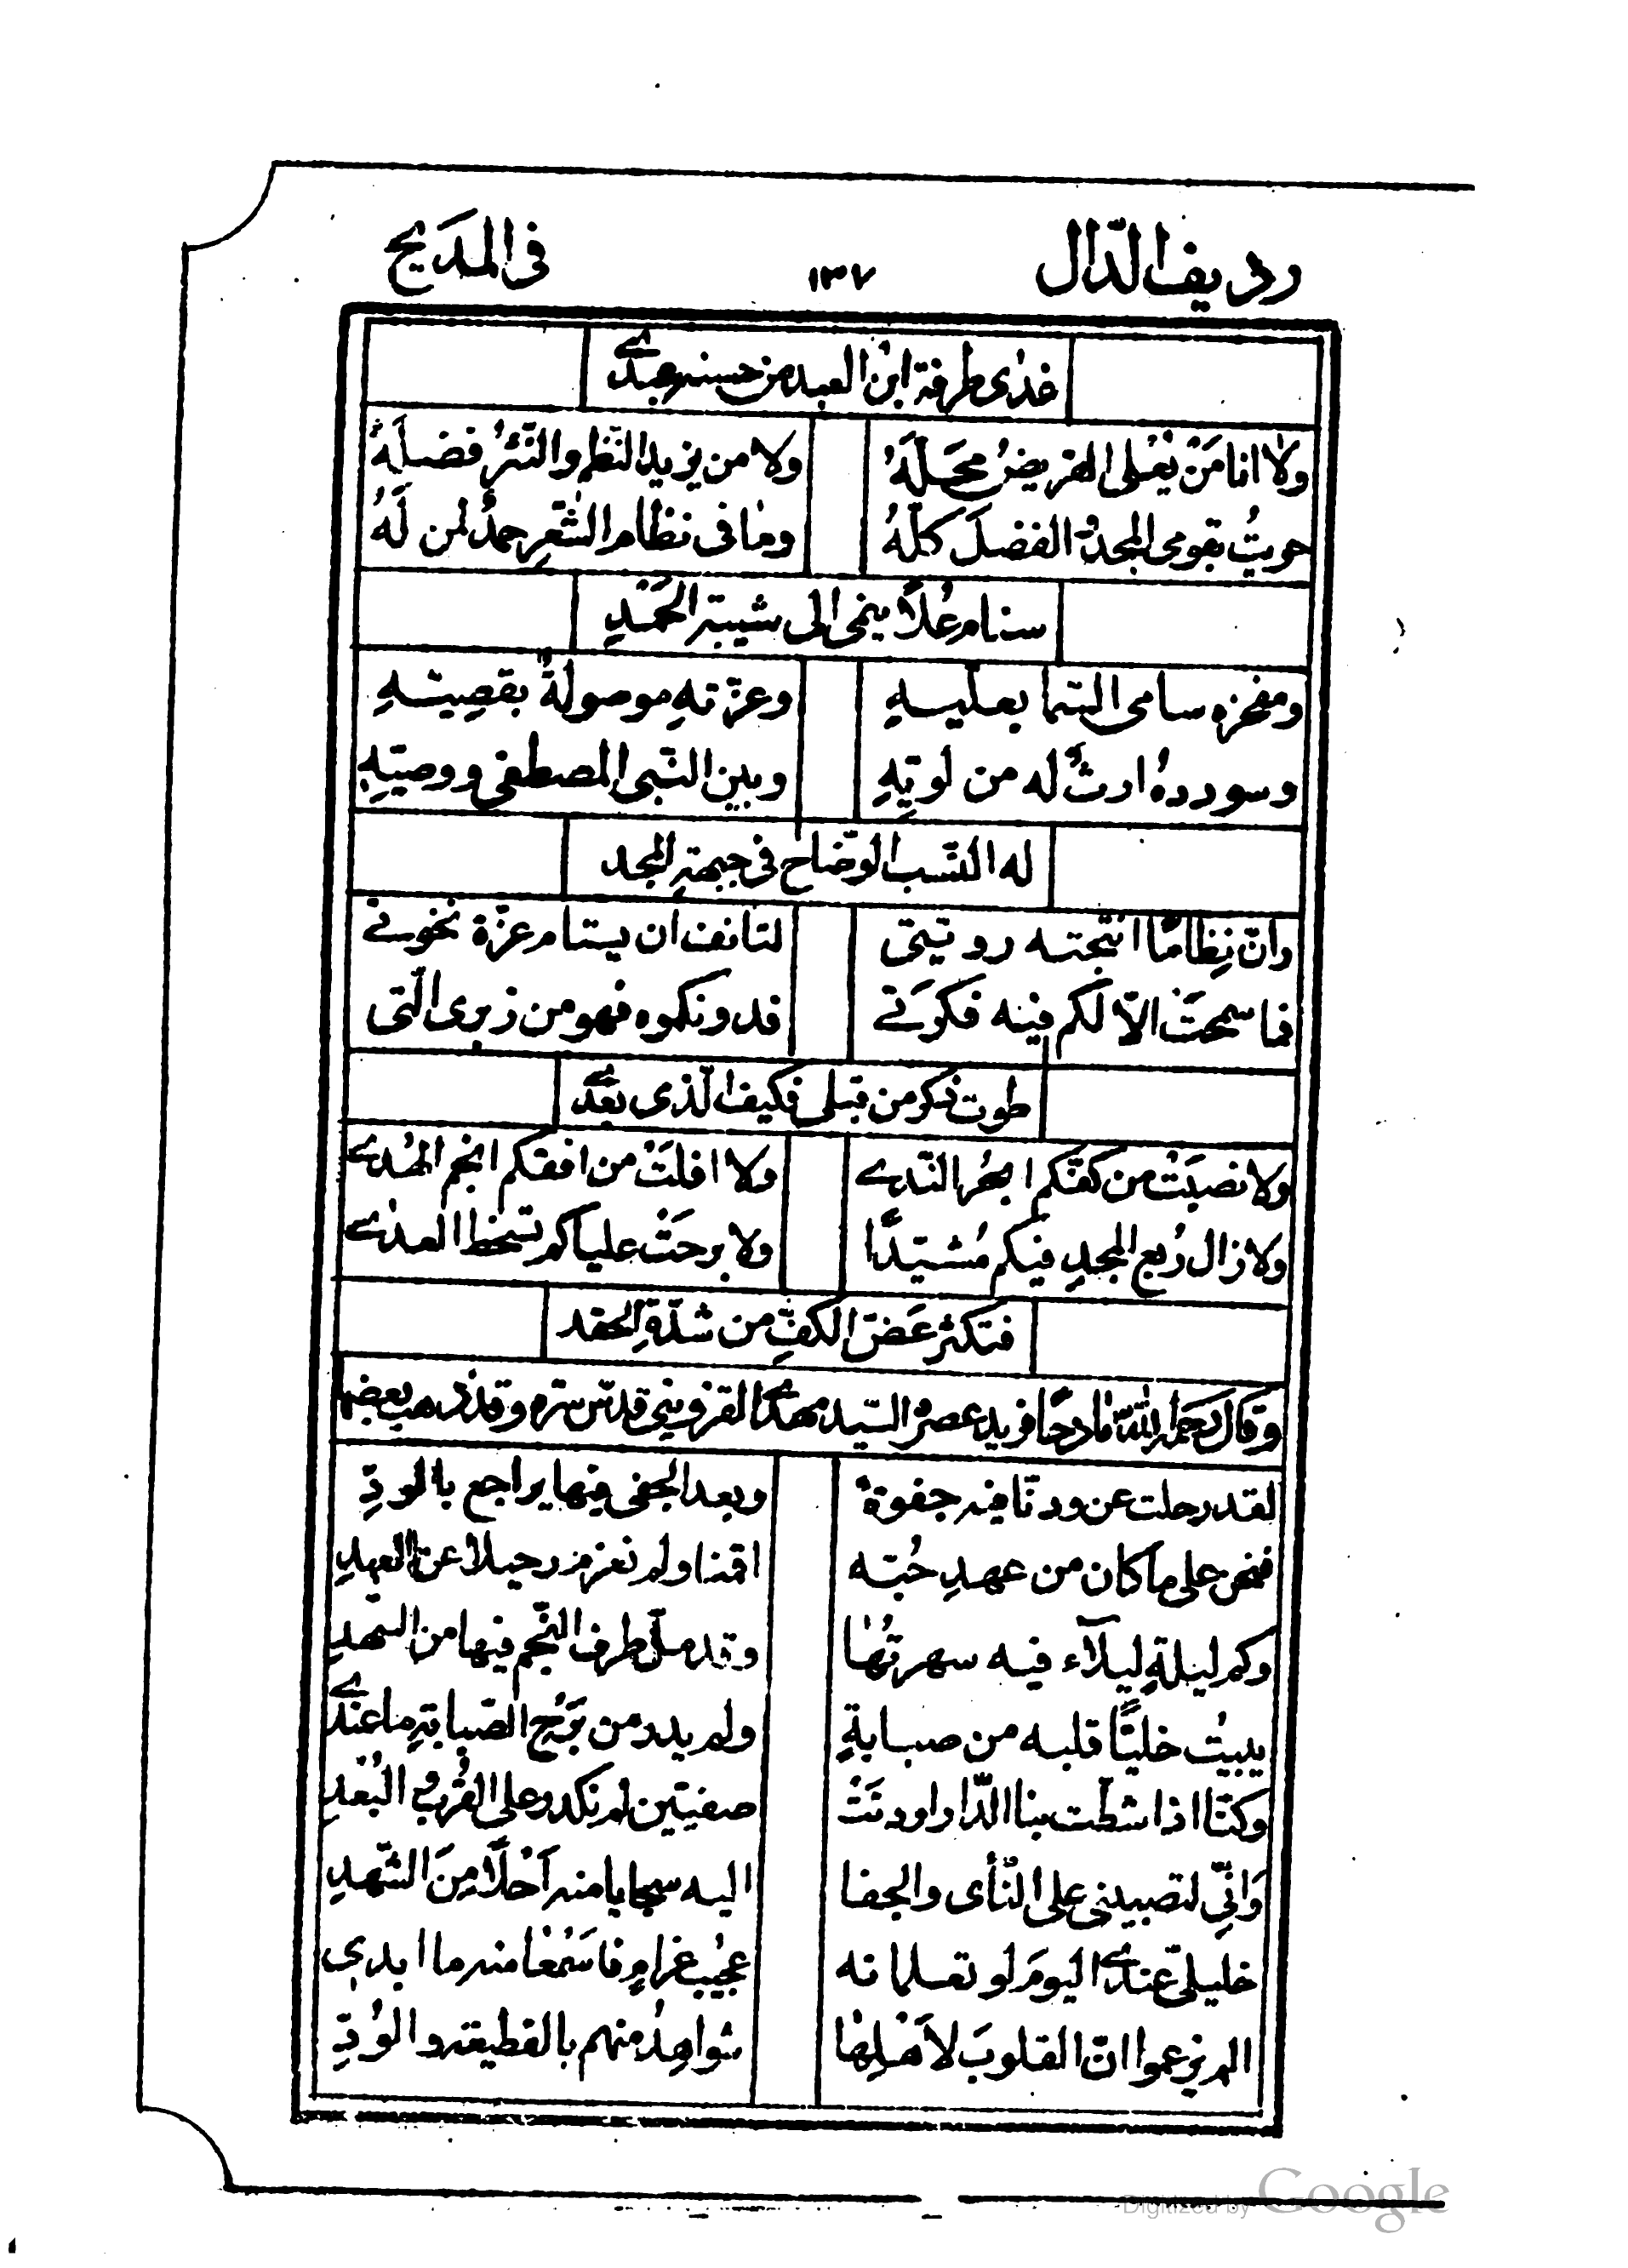 رديف الدّال ١٣٧ فى المديح
غدٰى طرفة ابن العبد من حسنه عبدے
ولا انا مَنْ يُعْلى القريضُ مَحَلّهُ ولا من يزيد النّظم والنّثرُ فضلَهُ
حويتُ بقومى المجدُ والفضلَ كلّهُ وما فى نظام الشّعر حمدٌ لمن لَهُ
سنام عُلًا ينمى الى شيبة الحَمْدِ
ومفخره سامى السّما بعليّهِ وعزّتهِ موصولةٌ بقصيّهِ
وسودده ارثٌ له من لويّهِ وبين النّبى المصطفى ووصيّهِ
له النّسب الوضّاح فى جبهةِ المجد
وانّ نِظامًا انتجته رويّتى لتانف ان يستام عزّة نخوتے
فما سمحَتْ الاّ لكم فيه فكرَتے فدونكموه فهو من زبرى الّتى
طوت ذكر من قبلى فكيف الّذى بعدے
ولا نضبَتْ من كفّكم ابحُر النّدے ولا افلَتْ من افقكم انجم الهُدے
ولا زال رُبع المجدِ فيكم مُشيّدًا ولا برحَتْ علياكم تسخط العدٰے
فتكثر عَضّ الكفِّ من شدّةِ الحقد
وقال رحمه الله مادحًا فريد عصره السّيد مهدے القزوينى قدّس سرّه وقد ذهب بعضها
لقد رحلت عن ودّنا فيه جفوةٌ وبعد الجفى فيها يراجع بالودِّ
فنحن على ما كان من عهدِ حُبّه اقمنا ولم نعزم رحيلا عن العهدِ
وكم ليلةٍ ليلآء فيه سهرتُها وقد ملّ طرف النّجم فيها من السّهد
يبيتُ خليًّا قلبه من صبابةٍ ولم يدر من بَرْح الصّبابةِ ما عندے
وكنّا اذا شطّت بنا الدّار اودنَتْ صفيّين لم نكدر على القُرب والبُعْدِ
وَانّى لتصبينى على النّأى والجفا اليه سجايا منه اَحْلًا مِنَ الشّهدِ
خليلىّ عندے اليومَ لو تعلمانه عجيب غرامٍ فاسْمَعا منه ما ابدى
الم يزعموا انّ القلوبَ لاَهْلِها شواهدُ منهم بالقطيعه والوُدِّ
Digitized by Google